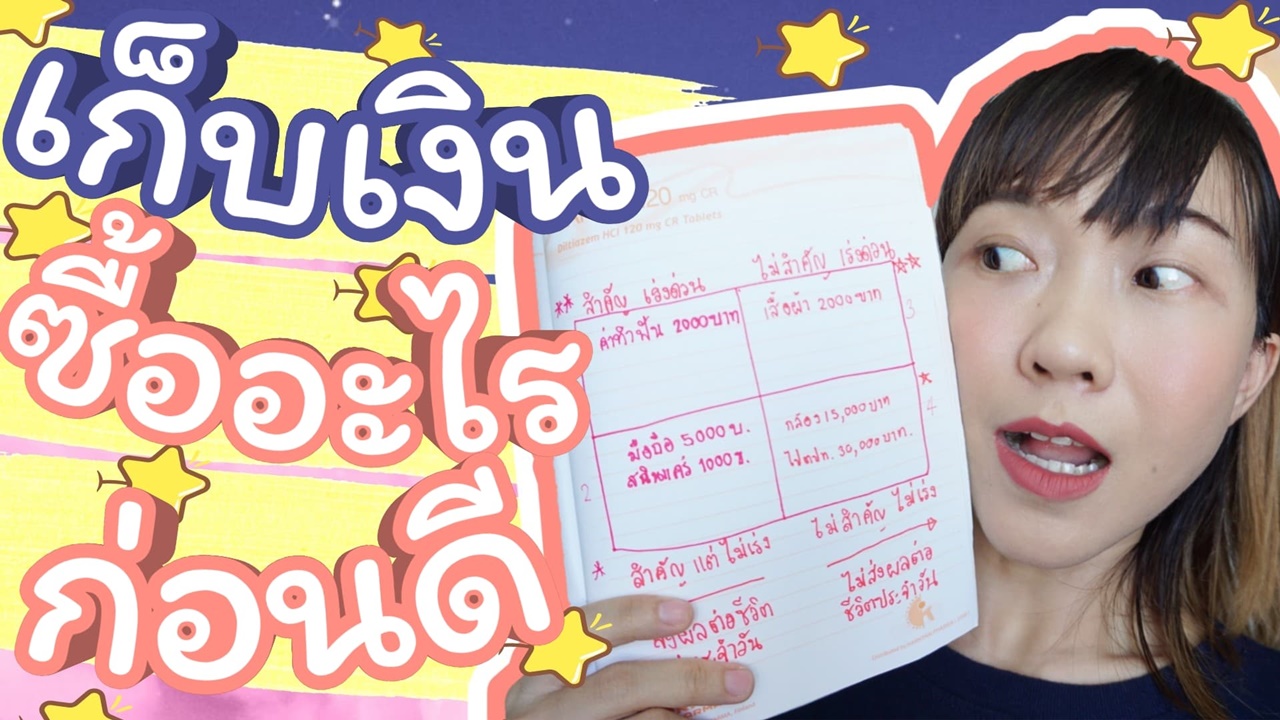 เก็บเงิน
ซื้ออะไร
ก่อนดี
20 mg CR
Diltiazem HCl 120 mg CR Tablets
** สำคัญ เร่งด่วน
ไม่สำคัญ เร่งด่วน **
ค่าทำฟัน 2000 บาท
เสื้อผ้า 2000 บาท
3
2
มือถือ 5000 บ.
สกินแคร์ 1000 บ.
กล้อง 15,000 บาท
ไปตปท. 30,000 บาท.
* 4
* สำคัญ แต่ ไม่เร่ง
ไม่สำคัญ ไม่เร่ง
ส่งผลต่อชีวิต
ประจำวัน
ไม่ส่งผลต่อ
ชีวิตประจำวัน